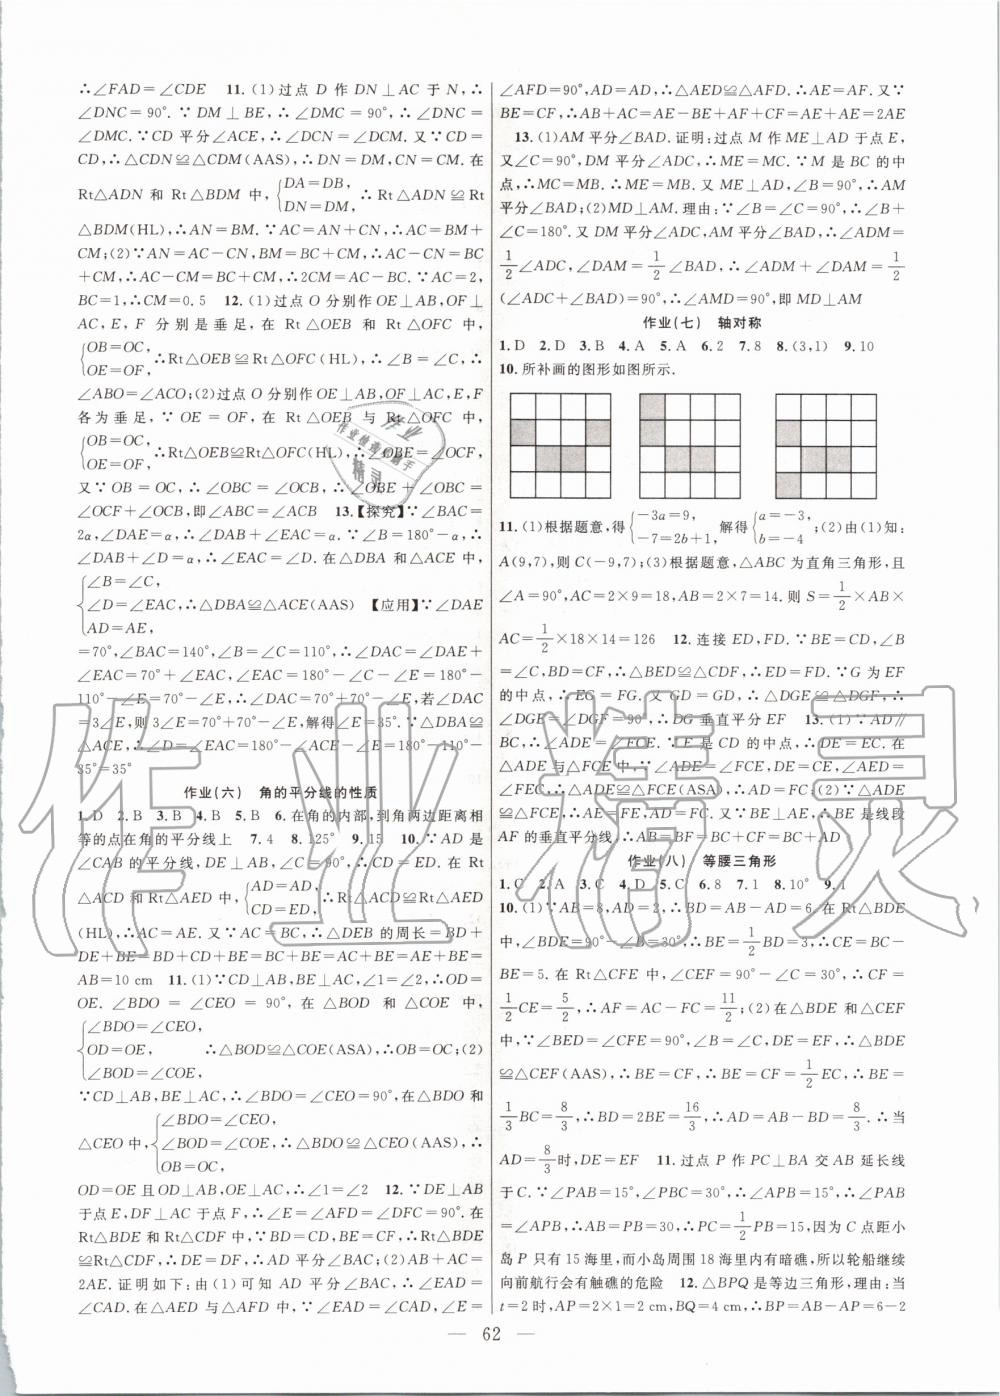 ∴∠FAD=∠CDE 11.(1)过点 D 作 DN⊥AC 于 N,∴
∠DNC=90°.∵DM⊥BE,∴∠DMC=90°,∴∠DNC=
∠DMC.∵CD平分∠ACE,∴∠DCN=∠DCM.又∵CD=
CD,∴△CDN≌△CDM(AAS),∴DN=DM,CN=CM.在
Rt△ADN 和 Rt△BDM 中,{DA=DB, DN=DM, ∴Rt△ADN≌Rt
△BDM(HL),∴AN=BM.∵AC=AN+CN,∴AC=BM+
CM;(2)∵AN=AC-CN,BM=BC+CM,∴AC-CN=BC
+CM,∴AC-CM=BC+CM,∴2CM=AC-BC.∵AC=2,
BC=1,∴CM=0.5 12.(1)过点 O 分别作 OE⊥AB,OF⊥
AC,E,F 分别是垂足,在 Rt△OEB 和 Rt△OFC 中,
{OB=OC, OE=OF, ∴Rt△OEB≌Rt△OFC(HL),∴∠B=∠C,∴
∠ABO=∠ACO;(2)过点 O 分别作 OE⊥AB,OF⊥AC,E,F
各为垂足,∵OE=OF,在 Rt△OEB 与 Rt△OFC 中,
{OB=OC, OE=OF, ∴Rt△OEB≌Rt△OFC(HL),∴∠OBE=∠OCF,
又∵OB=OC,∴∠OBC=∠OCB,∴∠OBE+∠OBC=
∠OCF+∠OCB,即∠ABC=∠ACB 13.【探究】∵∠BAC=
2α,∠DAE=α,∴∠DAB+∠EAC=α.∵∠B=180°-α,∴
∠DAB+∠D=α,∴∠EAC=∠D.在△DBA 和△ACE 中,
{∠B=∠C, ∠D=∠EAC, AD=AE, ∴△DBA≌△ACE(AAS) 【应用】∵∠DAE
=70°,∠BAC=140°,∠B=∠C=110°,∴∠DAC=∠DAE+
∠EAC=70°+∠EAC,∠EAC=180°-∠C-∠E=180°-
110°-∠E=70°-∠E,∴∠DAC=70°+70°-∠E,若∠DAC
=3∠E,则 3∠E=70°+70°-∠E,解得∠E=35°.∵△DBA≌
△ACE,∴∠D=∠EAC=180°-∠ACE-∠E=180°-110°-
35°=35°
作业(六) 角的平分线的性质
1.D 2.B 3.B 4.B 5.B 6.在角的内部,到角两边距离相
等的点在角的平分线上 7.4 8.125° 9.15 10.∵AD 是
∠CAB 的平分线,DE⊥AB,∠C=90°,∴CD=ED.在 Rt
△ACD 和 Rt△AED 中,{AD=AD, CD=ED, ∴Rt△ACD≌Rt△AED
(HL),∴AC=AE.又∵AC=BC,∴△DEB 的周长=BD+
DE+BE=BD+CD+BE=BC+BE=AC+BE=AE+BE=
AB=10 cm 11.(1)∵CD⊥AB,BE⊥AC,∠1=∠2,∴OD=
OE.∠BDO=∠CEO=90°,在△BOD 和△COE 中,
{∠BDO=∠CEO, OD=OE, ∠BOD=∠COE, ∴△BOD≌△COE(ASA),∴OB=OC;(2)
∵CD⊥AB,BE⊥AC,∴∠BDO=∠CEO=90°,在△BDO 和
△CEO 中,{∠BDO=∠CEO, ∠BOD=∠COE, OB=OC, ∴△BDO≌△CEO(AAS),∴
OD=OE 且 OD⊥AB,OE⊥AC,∴∠1=∠2 12.∵DE⊥AB
于点 E,DF⊥AC 于点 F,∴∠AFD=∠DFC=90°.在
Rt△BDE 和 Rt△CDF 中,∵BD=CD,BE=CF,∴Rt△BDE
≌Rt△CDF,∴DE=DF,∴AD 平分∠BAC;(2)AB+AC=
2AE.证明如下:由(1)可知 AD 平分∠BAC,∴∠EAD=
∠CAD.在△AED 与△AFD 中,∵∠EAD=∠CAD,∠E=
∠AFD=90°,AD=AD,∴△AED≌△AFD.∴AE=AF.又∵
BE=CF,∴AB+AC=AE-BE+AF+CF=AE+AE=2AE
13.(1)AM 平分∠BAD.证明:过点 M 作 ME⊥AD 于点 E,
又∠C=90°,DM 平分∠ADC,∴ME=MC.∵M 是 BC 的中
点,∴MC=MB.∴ME=MB.又 ME⊥AD,∠B=90°,∴AM
平分∠BAD;(2)MD⊥AM.理由:∵∠B=∠C=90°,∴∠B+
∠C=180°.又 DM 平分∠ADC,AM 平分∠BAD,∴∠ADM=
1/2∠ADC,∠DAM=1/2∠BAD,∴∠ADM+∠DAM=1/2
(∠ADC+∠BAD)=90°,∴∠AMD=90°,即 MD⊥AM
作业(七) 轴对称
1.D 2.D 3.B 4.A 5.A 6.2 7.8 8.(3,1) 9.10
10.所补画的图形如图所示.
11.(1)根据题意,得{-3a=9, -7=2b+1, 解得{a=-3, b=-4 ;(2)由(1)知:
A(9,7),则 C(-9,7);(3)根据题意,△ABC 为直角三角形,且
∠A=90°,AC=2×9=18,AB=2×7=14.则 S=1/2AB×
AC=1/2×18×14=126 12.连接 ED,FD.∵BE=CD,∠B
=∠C,BD=CF,∴△BED≌△CDF,∴ED=FD.∵G 为 EF
的中点,∴EG=FG.又∵GD=GD,∴△DGE≌△DGF,∴
∠DGE=∠DGF=90°,∴DG 垂直平分 EF 13.(1)∵AD∥
BC,∴∠ADE=∠FCE.∵E 是 CD 的中点,∴DE=EC.在
△ADE 与△FCE 中,∵∠ADE=∠FCE,DE=CE,∠AED=
∠FEC,∴△ADE≌△FCE(ASA),∴FC=AD;(2)∵
△ADE≌△FCE,∴AE=EF,AD=CF.又∵BE⊥AE,∴BE 是线段
AF 的垂直平分线,∴AB=BF=BC+CF=BC+AD
作业(八) 等腰三角形
1.C 2.A 3.C 4.D 5.C 6.8 7.1 8.10° 9.1
10.(1)∵AB=8,AD=2,∴BD=AB-AD=6.在 Rt△BDE
中,∠BDE=90°-∠B=30°,∴BE=1/2BD=3,∴CE=BC-
BE=5.在 Rt△CFE 中,∠FEC=90°-∠C=30°,∴CF=
1/2CE=5/2,∴AF=AC-FC=11/2;(2)在△BDE 和△CEF
中,∵∠BED=∠CFE=90°,∠B=∠C,DE=EF,∴△BDE
≌△CEF(AAS),∴BE=CF,∴BE=CF=1/2EC,∴BE=
1/3BC=8/3,∴BD=2BE=16/3,∴AD=AB-BD=8/3.∴当
AD=8/3时,DE=EF 11.过点 P 作 PC⊥BA 交 AB 延长线
于 C.∵∠PAB=15°,∠PBC=30°,∴∠APB=15°,∴∠PAB
=∠APB,∴AB=PB=15×2=30,∴PC=1/2PB=15,因为 C 点距小
岛 P 只有 15 海里,而小岛周围 18 海里内有暗礁,所以轮船继续
向前航行会有触礁的危险 12.△BPQ 是等边三角形,理由:当
t=2 时,AP=2×1=2 cm,BQ=4 cm,∴BP=AB-AP=6-2
— 62 —